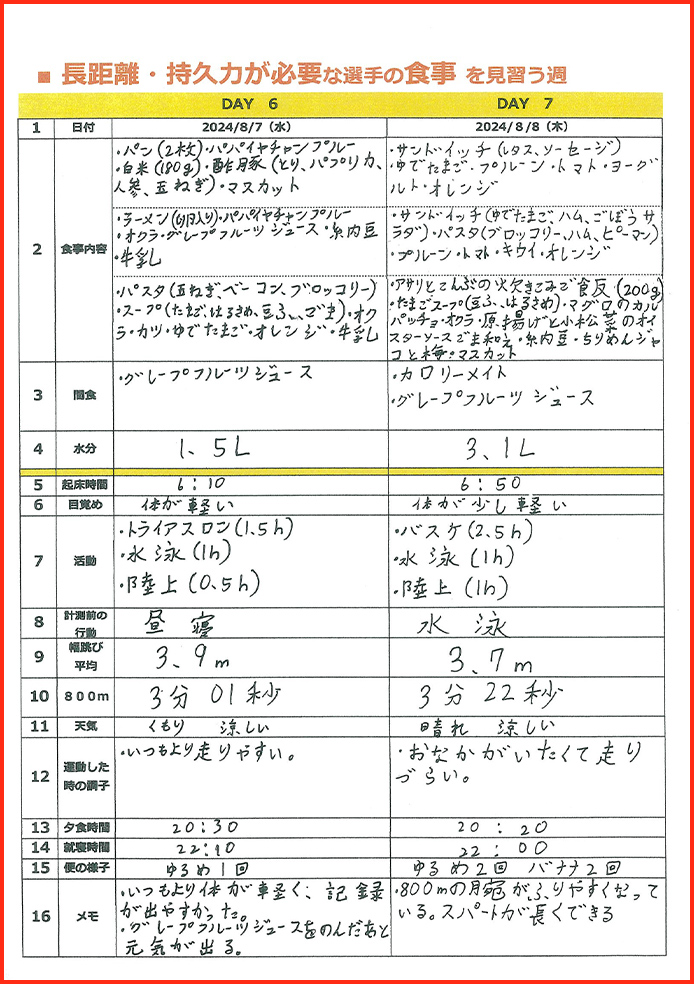 ■ 長距離・持久力が必要な選手の食事 を見習う週
DAY 6 DAY 7
1 日付 2024/8/7（水） 2024/8/8（木）
2 食事内容
・パン(2枚)・パパイヤチャンプルー
・白米(180g)・酢豚(とり、パプリカ、
人参、玉ねぎ)・マスカット
・ラーメン(卵入り)・パパイヤチャンプルー
・オクラ・グレープフルーツジュース・糸内豆
・牛乳
・パスタ(玉ねぎ、ベーコン、ブロッコリー)
・スープ(たまご、はるさめ、豆ふ、ごま)・オク
ラ・カツ・ゆでたまご・オレンジ・牛乳
・サンドイッチ(レタス、ソーセージ)
・ゆでたまご・プルーン・トマト・ヨーグ
ルト・オレンジ
・サンドイッチ(ゆでたまご、ハム、ごぼうサ
ラダ)・パスタ(ブロッコリー、ハム、ピーマン)
・プルーン・トマト・キウイ・オレンジ
・アサリとこんぶの火欠きこみご食反(200g)
・たまごスープ(豆ふ、はるさめ)・マグロのカル
パッチョ・オクラ・厚揚げと小松菜のオイ
スターソースごま和え・糸内豆・ちりめんジャ
コと梅・マスカット
3 間食 ・グレープフルーツジュース ・カロリーメイト
・グレープフルーツジュース
4 水分 1.5L 3.1L
5 起床時間 6:10 6:50
6 目覚め 体が軽い 体が少し軽い
7 活動
・トライアスロン(1.5h)
・水泳(1h)
・陸上(0.5h)
・バスケ(2.5h)
・水泳(1h)
・陸上(1h)
8 計測前の
行動 昼寝 水泳
9 幅跳び
平均 3.9m 3.7m
10 800m 3分01秒 3分22秒
11 天気 くもり 涼しい 晴れ 涼しい
12 運動した
時の調子
・いつもより走りやすい。
・おなかがいたくて走り
づらい。
13 夕食時間 20:30 20:20
14 就寝時間 22:10 22:00
15 便の様子 ゆるめ1回 ゆるめ2回 バナナ2回
16 メモ
・いつもより体が軽く、記録
が出やすかった。
・グレープフルーツジュースをのんだあと
元気が出る。
・800mの腕がふりやすくなって
いる。スパートが長くできる